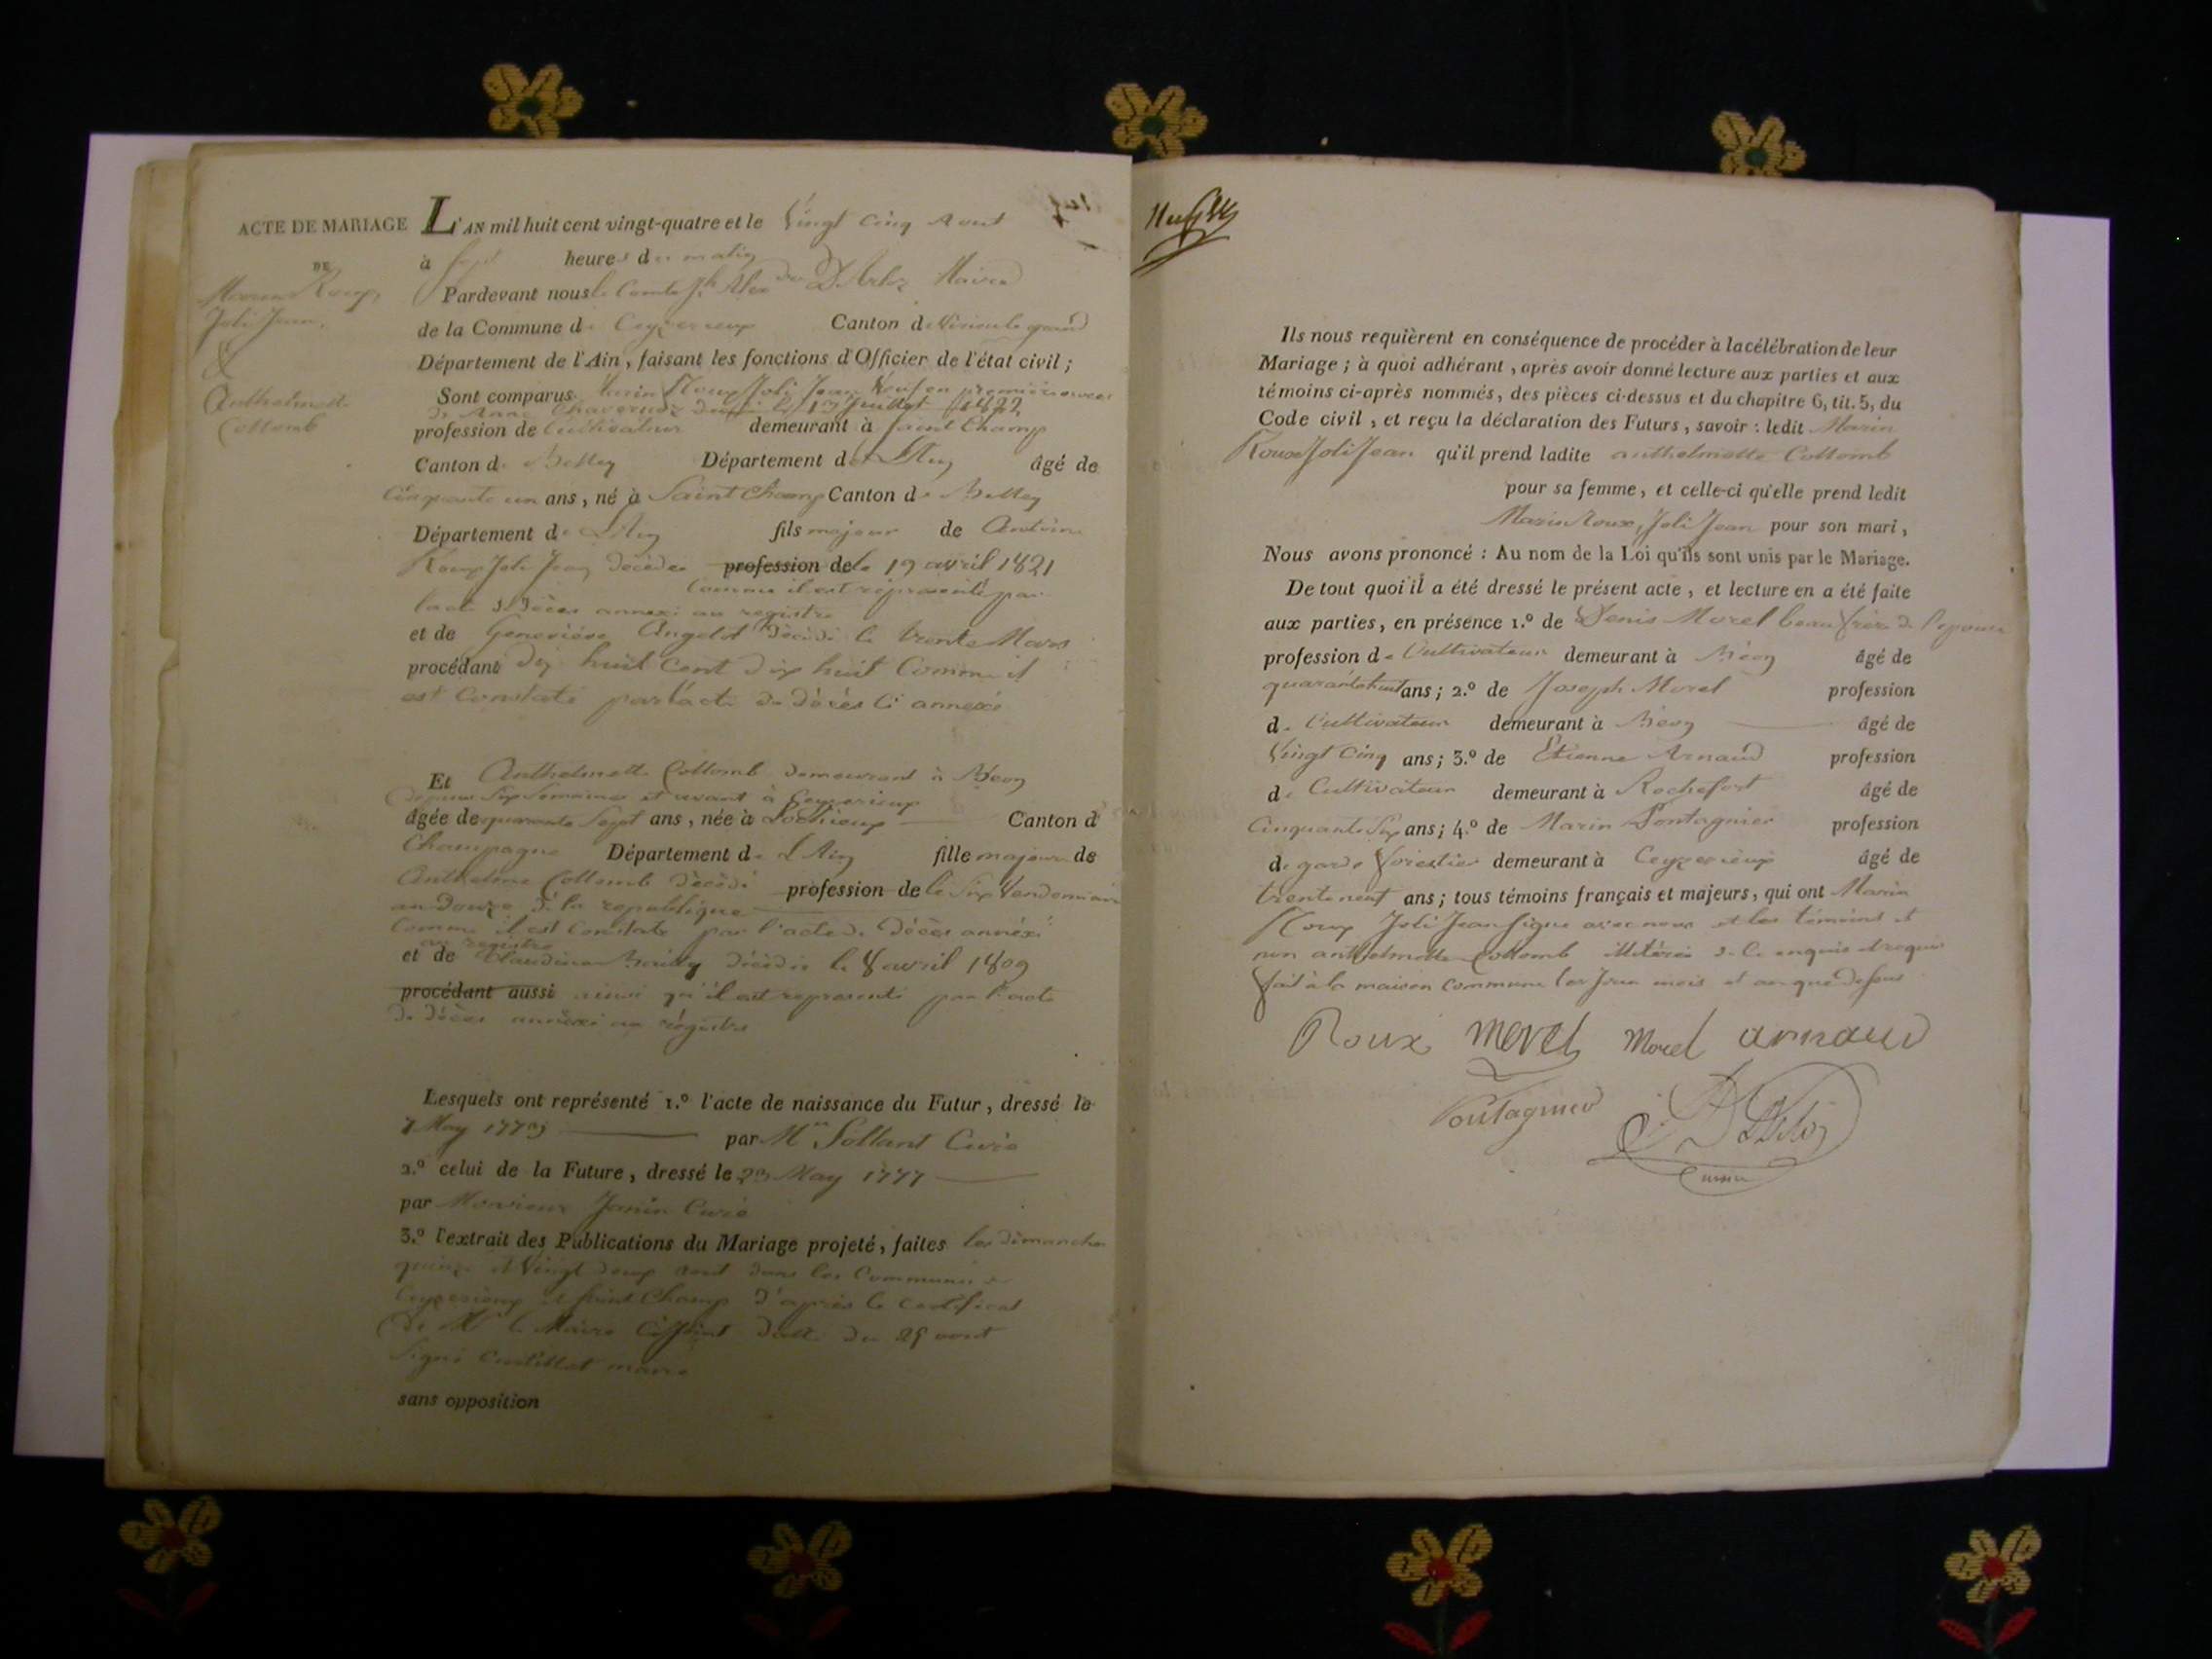 ACTE DE MARIAGE
DE
Marin Roux
Joli Jean,
&
Anthelmette
Collomb
L'AN mil huit cent vingt-quatre et le Vingt Cinq Aout
à sept heures du matin
Pardevant nous le Comte Jh Alexdre D'Arloz Maire
de la Commune de Ceyzerieux Canton de Virieu le grand
Département de l'Ain, faisant les fonctions d'Officier de l'état civil;
Sont comparus Marin Roux Joli Jean Veuf en premières noces
de Anne le 1er Juillet 1822
profession de Cultivateur demeurant à Saint Champ
Canton de Belley Département de L'Ain âgé de
Cinquante un ans, né à Saint Champ Canton de Belley
Département de L'Ain fils majeur de Antoine
Roux Joli Jean décédé profession de le 19 avril 1821
Comme il est représenté par
l'acte de Décès annexé au registre
et de Geneviève Angelot décédé le trente Mars
procédant dix huit Cent dix huit Comme il
est Constaté par l'acte de décès Ci annexé
Et Anthelmette Collomb demeurant à Béon
depuis Six Semaines et avant à Ceyzerieux
âgée de quarante Sept ans, née à Lochieux Canton de
Champagne Département de L'Ain fille majeure de
Anthelme Collomb décédé profession de le Six Vendemiaire
an douze de la republique
Comme il est Constaté par l'acte de Décès annéxé
au registre
et de Claudine Bailly décédée le 8 avril 1809
procédant aussi ainsi qu'il est representé par l'acte
de décès annéxé au régistre
Lesquels ont représenté 1.º l'acte de naissance du Futur, dressé le
7 May 1773 par Mr Sollant Curé
2.º celui de la Future, dressé le 23 May 1777
par Monsieur Janin Curé
3.º l'extrait des Publications du Mariage projeté, faites les dimanches
quinze et Vingt deux aout dans les Communes de
Ceyzerieux et Saint Champ d'après le Certificat
de Mr le Maire date du 25 aout
Signé maire
sans opposition
Ils nous requièrent en conséquence de procéder à la célébration de leur
Mariage; à quoi adhérant, après avoir donné lecture aux parties et aux
témoins ci-après nommés, des pièces ci-dessus et du chapitre 6, tit. 5, du
Code civil, et reçu la déclaration des Futurs, savoir: ledit Marin
Roux Joli Jean qu'il prend ladite anthelmette Collomb
pour sa femme, et celle-ci qu'elle prend ledit
Marin Roux, Joli Jean pour son mari,
Nous avons prononcé: Au nom de la Loi qu'ils sont unis par le Mariage.
De tout quoi il a été dressé le présent acte, et lecture en a été faite
aux parties, en présence 1.º de Denis Morel beau frère de l'epoux
profession de Cultivateur demeurant à Béon âgé de
quarante huit ans; 2.º de Joseph Morel profession
de Cultivateur demeurant à Béon âgé de
Vingt Cinq ans; 3.º de Etienne Arnaud profession
de Cultivateur demeurant à Rochefort âgé de
Cinquante Six ans; 4.º de Marin Pontagnier profession
de garde forestier demeurant à Ceyzerieux âgé de
trente neuf ans; tous témoins français et majeurs, qui ont Marin
Roux Joli Jean Signé avec nous et les témoins et
non anthelmette Collomb illitérée de Ce enquise et requise
fait à la maison Commune les Jour mois et an que dessus
Roux Morel Morel arnaud
Pontagnier D'Arloz